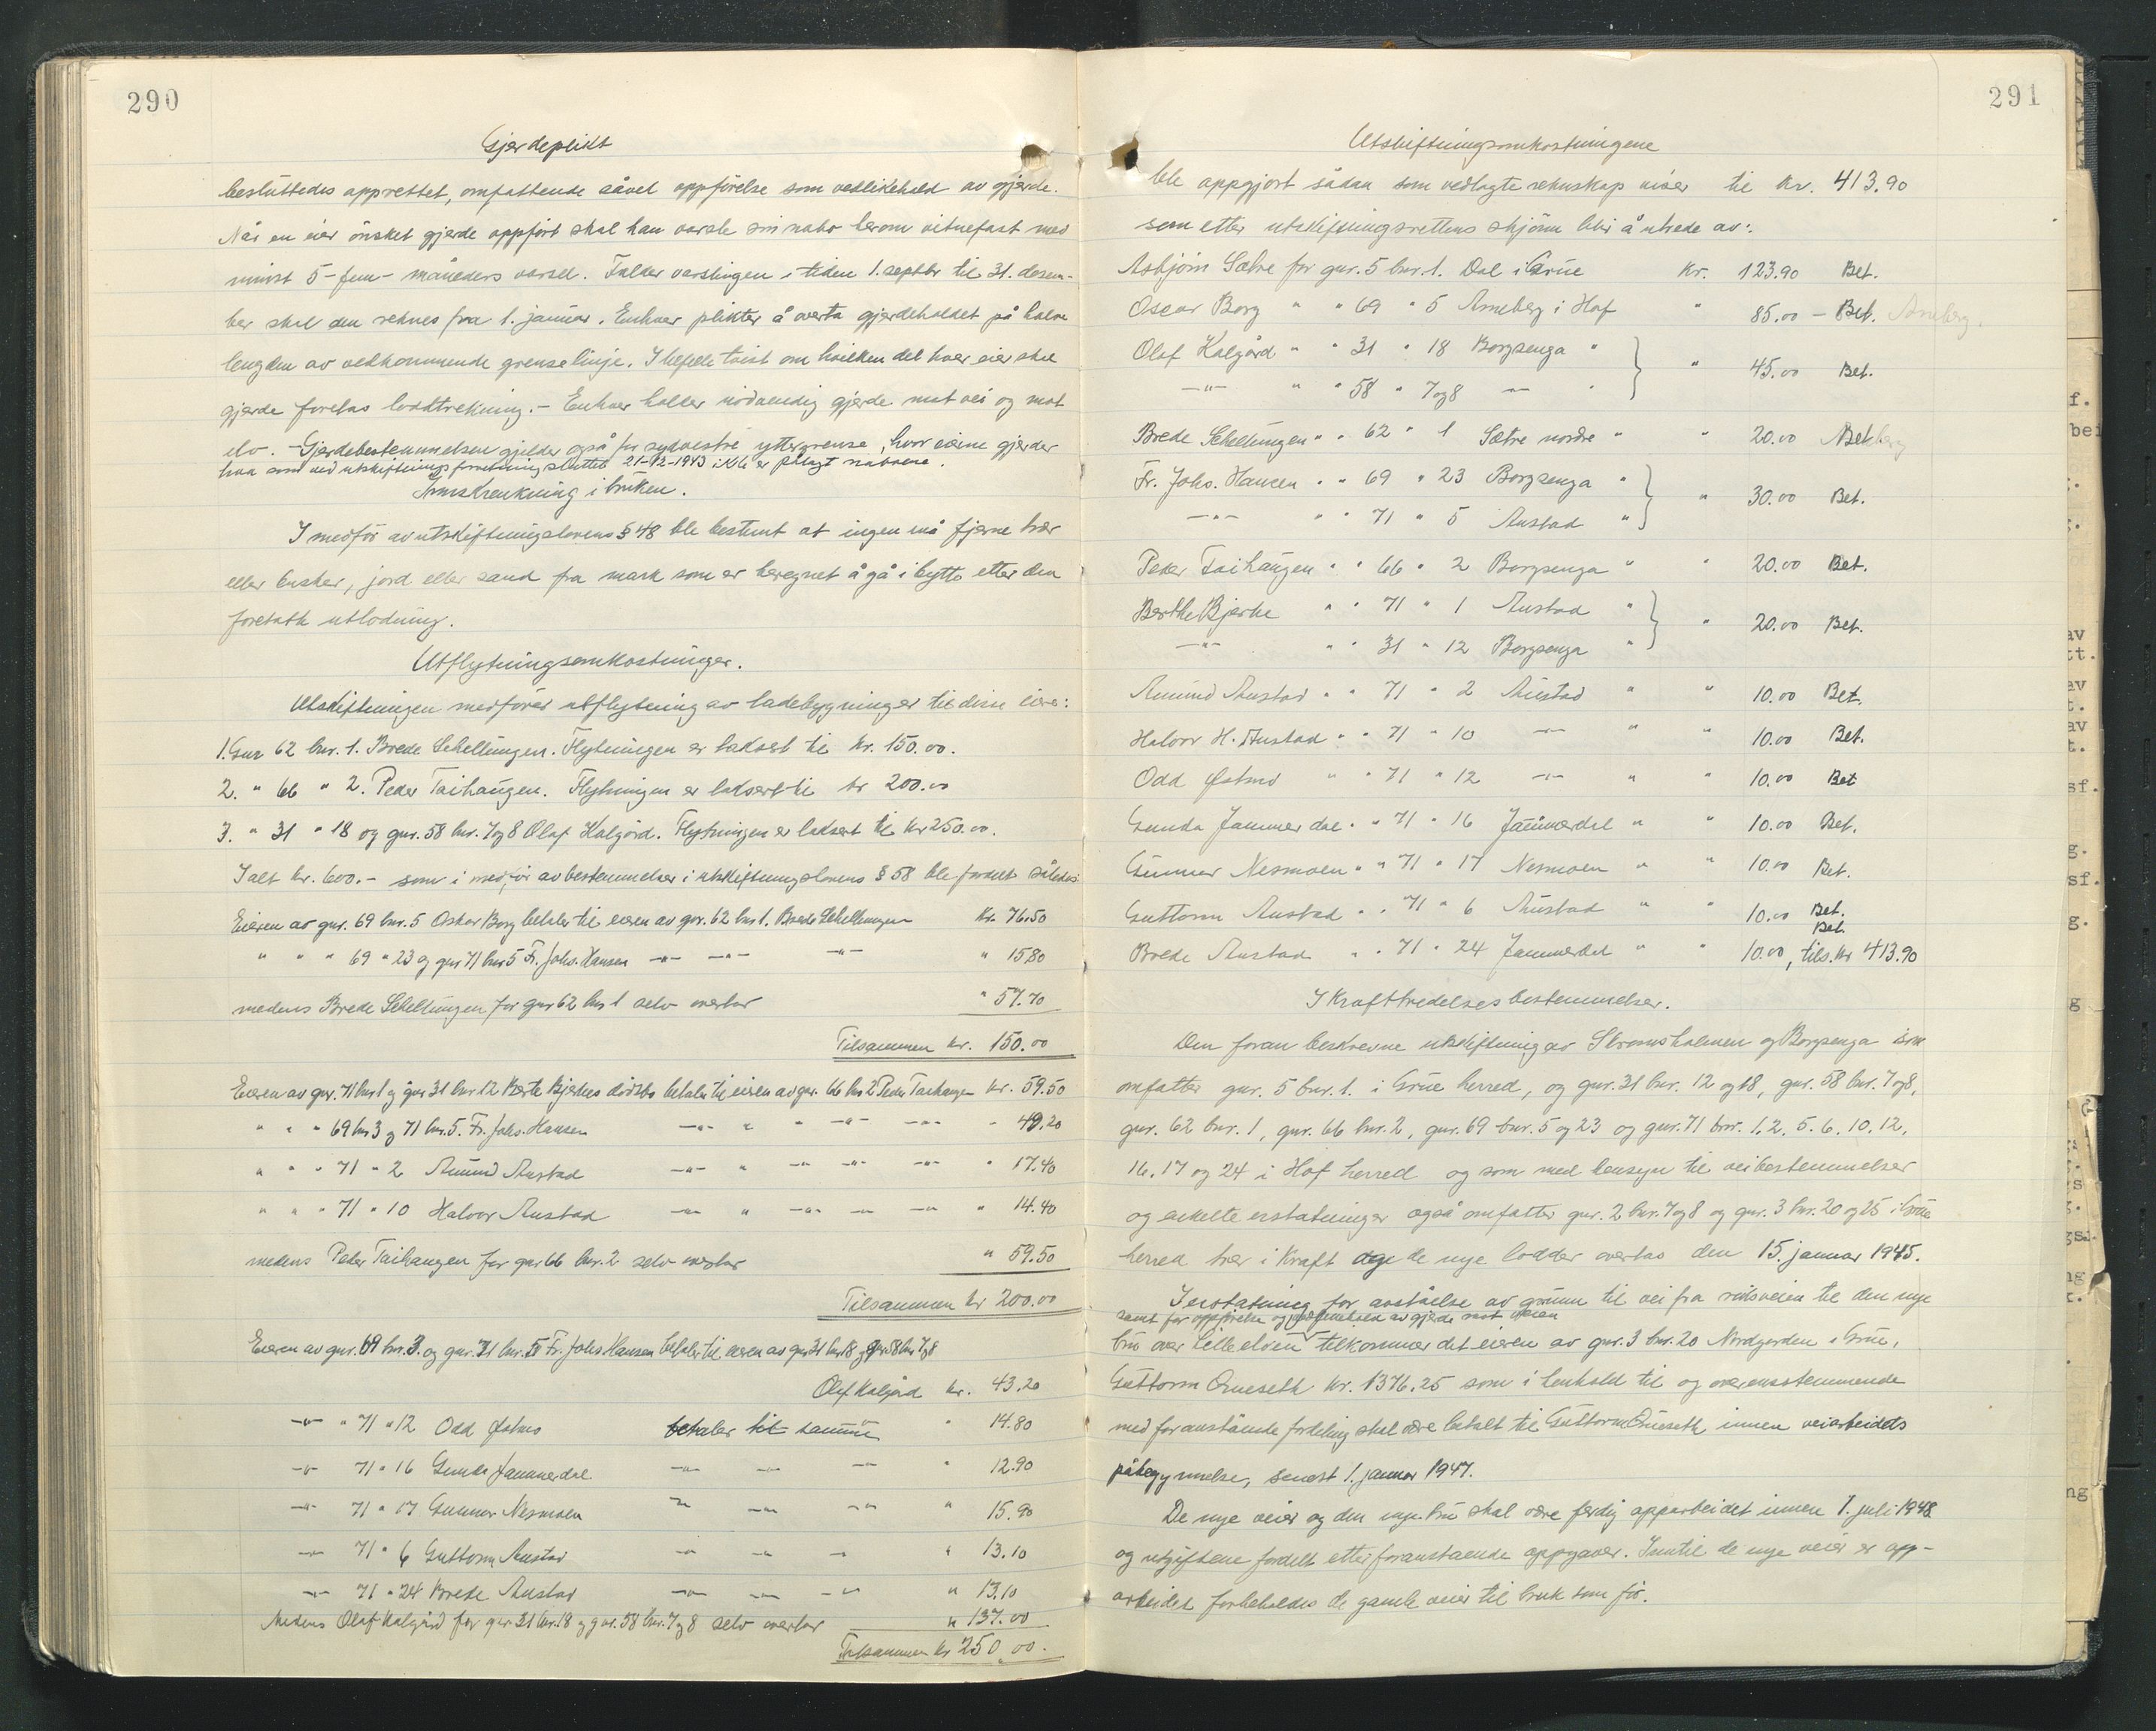 290
Gjerdeplikt
besluttedes opprettet, omfattende såvel oppførelse som vedlikehold av gjerde.
Når en eier ønsket gjerde oppført skal han varsle sin nabo herom vitnefast med
minst 5-fem- måneders varsel. Faller varslingen i tiden 1. septbr til 31. desem-
ber skal den reknes fra 1. januar. Enhver plikter å overta gjerdeholdet på halve
lengden av vedkommende grenselinje. I tilfelle tvist om hvilken del hver eier skal
gjerde foretas loddtrekning. - Enhver holder nødvendig gjerde mot vei og mot
elv. - Gjerdebestemmelsen gjelder også for sydvestre yttergrense, hvor eierne gjerder
hva som ved utskiftningsforretning sluttet 21-12-1943 ikke er pålagt naboene.
Innskrenkning i bruken.
I medfør av utskiftningslovens § 48 ble bestemt at ingen må fjerne trær
eller busker, jord eller sand fra mark som er beregnet å gå i bytte etter den
foretatte utlodning.
Utflytningsomkostninger.
Utskiftningen medfører utflytning av ladebygninger til disse eiere:
1. Gnr 62 bnr. 1. Brede Schellungen. Flytningen er taksert til kr. 150.00.
2. " 66 " 2. Peder Taihaugen. Flytningen er taksert til kr 200.00
3. " 31 " 18 og gnr. 58 bnr. 7 og 8 Olaf Kalgård. Flytningen er taksert til kr 250.00.
I alt kr. 600.- som i medfør av bestemmelser i utskiftningslovens § 58 ble fordelt således:
Eieren av gnr. 69 bnr. 5 Oskar Borg betaler til eieren av gnr. 62 bnr 1. Brede Schellungen Kr. 76.50
" " " 69 " 23 og gnr 71 bnr 5 Fr. Johs. Hansen -"- -"- -"- " 15.80
medens Brede Schellungen for gnr 62 bnr 1 selv overtar " 57.70
Tilsammen kr. 150.00
Eieren av gnr. 71 bnr 1 og gnr 31 bnr. 12 Berte Bjerkes dødsbo betaler til eieren av gnr. 66 bnr 2 Peder Taihaugen kr. 59.50
" " " 69 bnr 3 og 71 bnr. 5. Fr. Johs. Hansen -"- " " -"- -"- " 49.20
" " " 71 " 2 Amund Austad -"- " -"- -"- -"- " 17.40
" " " 71 " 10 Halvor Austad -"- " -"- -"- -"- " 14.40
medens Peder Taihaugen for gnr 66 bnr. 2 selv overtar " 59.50
Tilsammen kr 200.00
Eieren av gnr. 69 bnr. 3. og gnr. 71 bnr. 5 Fr. Johs Hansen betaler til eieren av gnr 31 bnr 18 og gnr. 58 bnr 7 og 8
Olaf Kalgård kr. 43.20
-"- " 71 " 12 Odd Østmo betaler til samme " 14.80
-"- 71 " 16 Gunda Jammerdal -"- -"- -"- " 12.90
-"- 71 " 17 Gunnar Nesmoen -"- -"- -"- " 15.90
-"- 71 " 6 Guttorm Austad -"- -"- -"- " 13.10
-"- 71 " 24 Brede Austad -"- -"- -"- " 13.10
Medens Olaf Kalgård for gnr 31 bnr. 18 og gnr. 58 bnr. 7 og 8 selv overtar " 137.00
Tilsammen kr 250.00.
291
Utskiftningsomkostningene
ble oppgjort sådan som vedlagte rekneskap viser til kr. 413.90
som etter utskiftningsrettens skjønn blir å utrede av:
Asbjørn Sætre for gnr. 5 bnr. 1. Dal i Grue Kr. 123.90 Bet.
Oscar Borg " " 69 " 5 Arneberg i Hof " 85.00 - Bet. Arneberg.
Olaf Kalgård " " 31 " 18 Borgsenga " } " 45.00 Bet.
-"- " " 58 " 7 og 8 -"- "
Brede Schellungen " " 62 " 1 Sætre nordre " " 20.00 Bet.
Fr. Johs. Hansen " " 69 " 23 Borgsenga " } " 30.00 Bet.
-"- " " 71 " 5 Austad "
Peder Taihaugen " " 66 " 2 Borgsenga " " 20.00 Bet.
Berthe Bjerke " " 71 " 1 Austad " } " 20.00 Bet.
-"- " " 31 " 12 Borgsenga "
Amund Austad " " 71 " 2 Austad " " 10.00 Bet.
Halvor H. Austad " " 71 " 10 -"- " " 10.00 Bet.
Odd Østmo " " 71 " 12 -"- " " 10.00 Bet
Gunda Jammerdal " " 71 " 16 Jammerdal " " 10.00 Bet.
Gunnar Nesmoen " " 71 " 17 Nesmoen " " 10.00 Bet.
Guttorm Austad " " 71 " 6 Austad " " 10.00 Bet.
Bet.
Brede Austad " " 71 " 24 Jammerdal " " 10.00, tils. kr 413.90
Ikrafttredelsesbestemmelser.
Den foran beskrevne utskiftning av Strømsholmen og Borgsenga som
omfatter gnr. 5 bnr. 1. i Grue herred, og gnr. 31 bnr. 12 og 18, gnr. 58 bnr. 7 og 8,
gnr. 62 bnr. 1, gnr. 66 bnr. 2, gnr. 69 bnr. 5 og 23 og gnr. 71 bnr. 1. 2. 5. 6. 10. 12.
16. 17 og 24 i Hof herred og som med hensyn til veibestemmelser
og enkelte erstatninger også omfatter gnr. 2 bnr. 7 og 8 og gnr. 3 bnr. 20 og 25 i Grue
herred trer i kraft og de nye lodder overtas den 15. januar 1945.
I erstatning for avståelse av grunn til vei fra riksveien til den nye
samt for oppførelse og vedlikehold av gjerde mot veien
bru over Lilleelven tilkommer det eieren av gnr. 3 bnr. 20 Nordgarden i Grue,
Guttorm Grueseth kr. 1376.25 som i henhold til og overensstemmende
med foranstående fordeling skal være betalt til Guttorm Grueseth innen veiarbeidets
påbegynnelse, senest 1. januar 1947.
De nye veier og den nye bru skal være ferdig opparbeidet innen 1. juli 1948
og utgiftene fordelt etter foranstaende oppgaver. Inntil de nye veier er opp-
arbeidet forbeholdes de gamle veier til bruk som før.